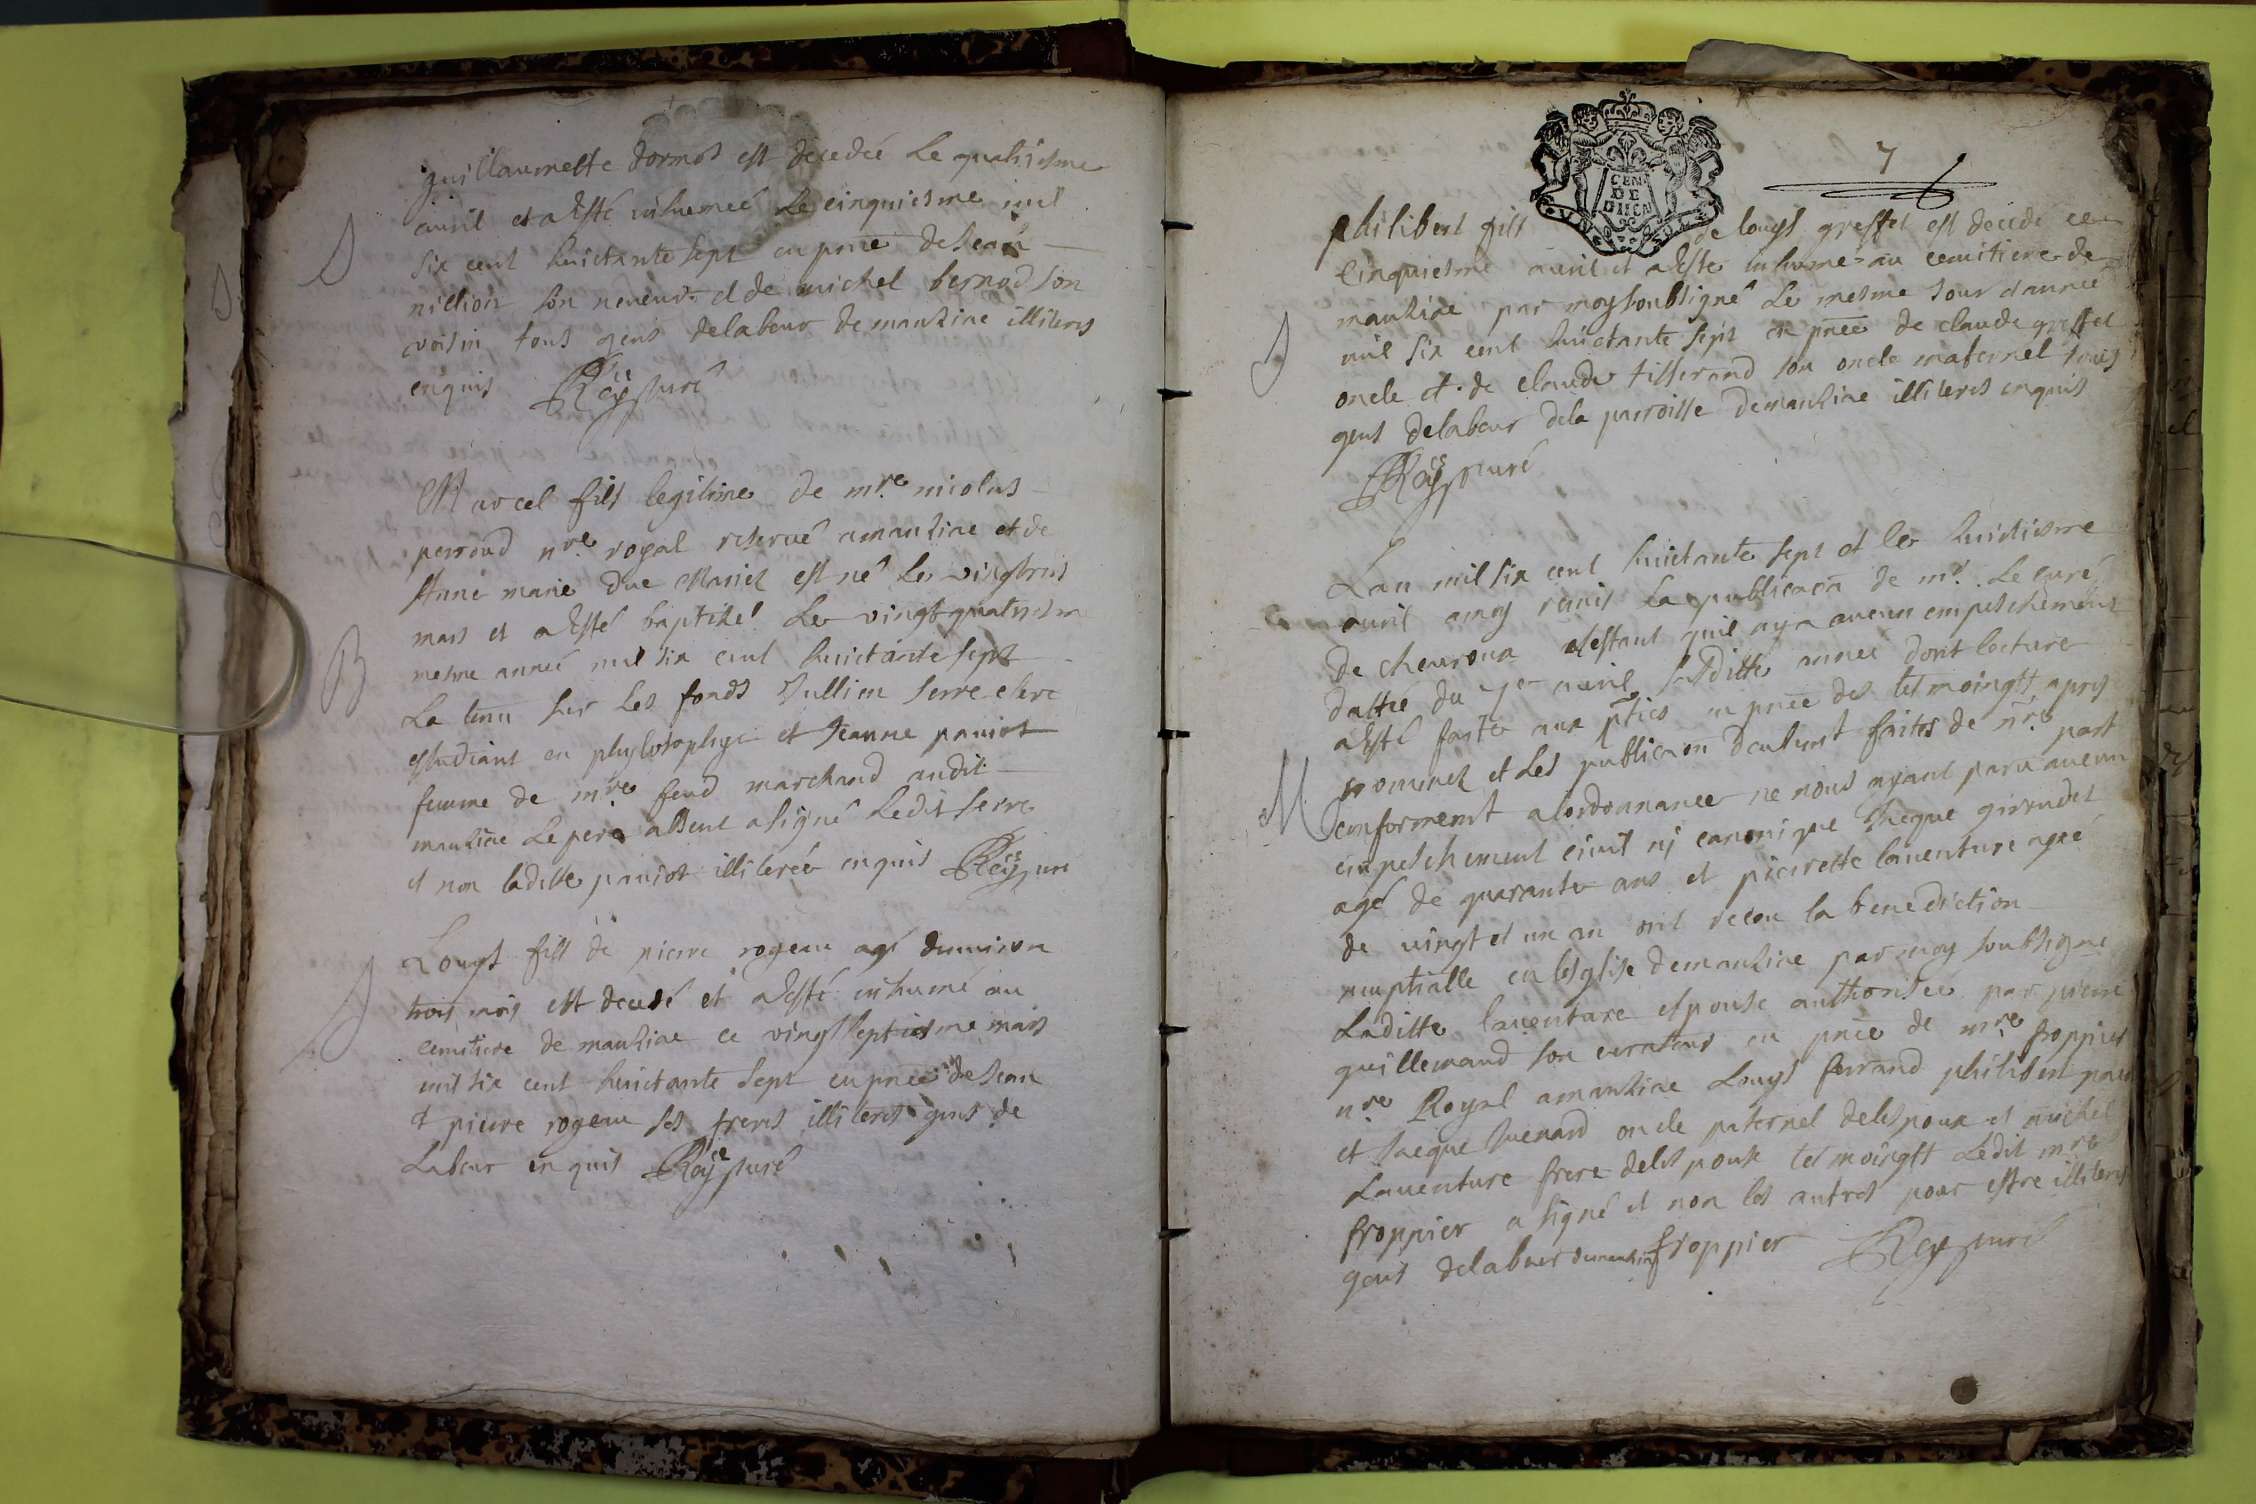 guillaumette dormos est decedeé Le quatriesme
auril et a Esté inhumeé Le cinquiesme mil
six cent huictante sept en pnce de Jean
nillion son neueur et de michel bernod son
voisin tous gens delabeur de manziac illiteres
enquis Rey curé
D
Marcel fils legitime de mre nicolas
perroud nre royal reserué a manziac et de
Anne marie Duc est né Le vingt trois
mars et a Esté baptizé Le vingt quatriesme
mesme anneé mil six cent huictante sept
La tenu sur Les fonds Jullien serre clerc
estudiant en phylosophye et Jeanne paniot
femme de mre feud marchand audit
manziac Le pere absent a signé Ledit serre
et non laditte paniot illitereé enquis Rey curé
B
Louys fils de pierre rogeau agé denuiron
trois mois est decedé et a Esté inhumé au
cemitiere de manziac ce vingt septiesme mars
mil six cent huictante sept en pnce de Jean
et pierre rogeau ses freres illiteres gens de
Labeur enquis Rey curé
D
CENT
DE
DIJON
7
philibert fils de louys greffet est decedé ce
Cinquiesme auril et a Este inhumé au cemitiere de
manziac par moy soubsigné Le mesme Jour et anneé
mil six cent huictante sept en pnce de claude greffet
oncle et de claude tisserand son oncle maternel tous
gens delabeur dela parroisse de manziac illiteres enquis
Rey curé
D
Lan mil six cent huictante sept et le huictiesme
auril a moy remis La publicaon de mr Le curé
de cheuroux attestant quil ny a aucun empeschement
dattré du 7er auril susditte anneé dont lecture
a Esté faitte aux pties en pnce des tesmoingtt apres
nommez et Les publicaon deuëment faites de nre part
conformemt a lordonnance ne nous ayant paru aucun
empeschement ciuil nj canonique Jacque giraudet
agé de quarante ans et pierrette lauenture ageé
de vingt et un an ont receu la benediction
nuptialle en lesglise de manziac par moy soubsigné
Laditte lauenture espouse authoriseé par pierre
guillemaud son curateur en pnce de mre froppier
nre Royal a manziac Louys ferrand philibert
et Jacque Juenard oncle paternel delespoux et michel
Lauenture frere delespouse tesmoingtt Ledit mre
froppier a signé et non les autres pour estre illiteres
gens delabeur de manziac froppier Rey curé
M